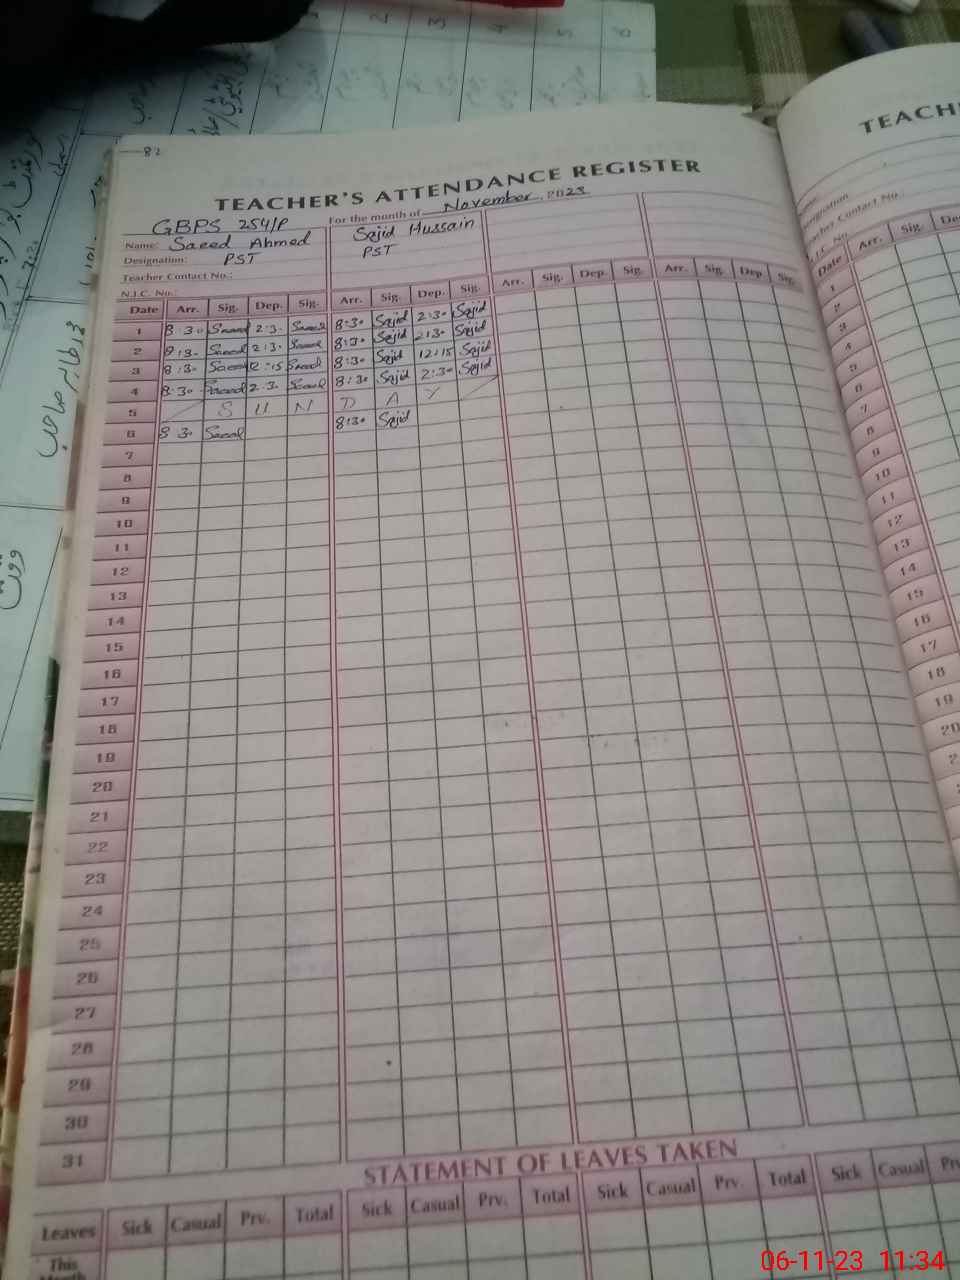 82
TEACHER'S ATTENDANCE REGISTER
GBPS 254/P For the month of November, 2023
Name: Saeed Ahmed Sajid Hussain
Designation: PST PST
Teacher Contact No.:
N.I.C. No.:
Date Arr. Sig. Dep. Sig. Arr. Sig. Dep. Sig. Arr. Sig. Dep. Sig. Arr. Sig. Dep. Sig.
1 8:30 Saeed 2:3. Saeed 8:30 Sajid 2:30 Sajid
2 8:3. Saeed 2:3. Saeed 8:30 Sajid 2:30 Sajid
3 8:30 Saeed 12:15 Saeed 8:30 Sajid 12:15 Sajid
4 8:30 Saeed 2:3. Saeed 8:30 Sajid 2:30 Sajid
5 S U N D A Y
6 8 30 Saeed 8:30 Sajid
7
8
9
10
11
12
13
14
15
16
17
18
19
20
21
22
23
24
25
26
27
28
29
30
31
STATEMENT OF LEAVES TAKEN
Leaves Sick Casual Prv. Total Sick Casual Prv. Total Sick Casual Prv. Total Sick Casual
This
Month
TEACH
Contact No.:
Date Arr. Sig.
1
2
3
4
5
6
7
8
9
10
11
12
13
14
15
16
17
18
19
20
06-11-23 11:34